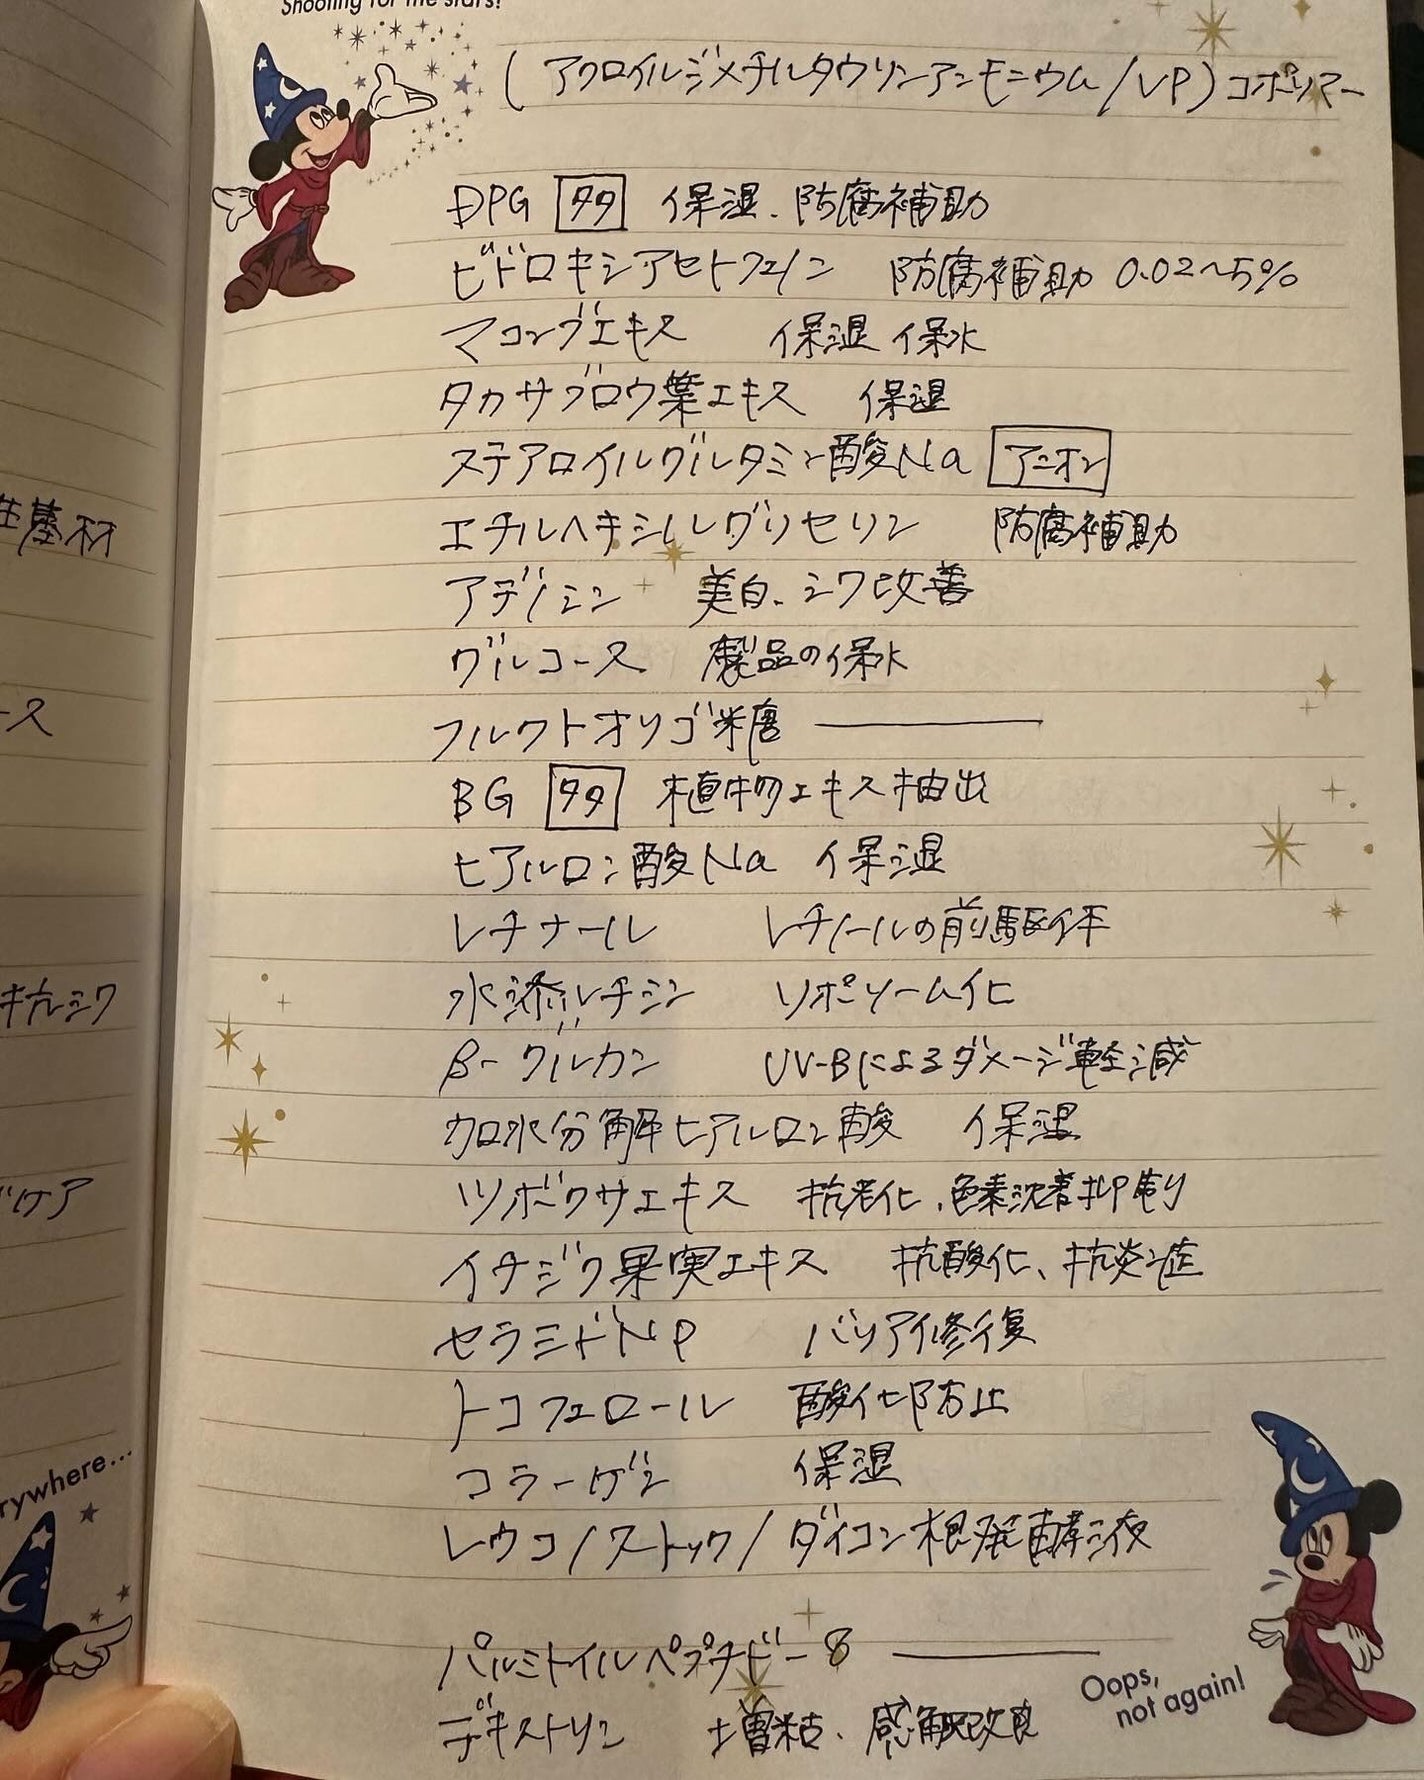 Shooting for the stars!
(アクロイルジメチルタウリンアンモニウム/VP)コポリマー
DPG 多 保湿、防腐補助
ヒドロキシアセトフェノン 防腐補助 0.02〜5%
マコンブエキス 保湿 保水
タカサブロウ葉エキス 保湿
ステアロイルグルタミン酸Na アニオン
エチルヘキシルグリセリン 防腐補助
アデノシン 美白、シワ改善
グルコース 製品の保水
フルクトオリゴ糖 ——
BG 多 植物エキス抽出
ヒアルロン酸Na 保湿
レチナール レチノールの前駆体
水添レチシン リポソーム化
β-グルカン UV-Bによるダメージ軽減
加水分解ヒアルロン酸 保湿
ツボクサエキス 抗老化、色素沈着抑制
イチジク果実エキス 抗酸化、抗炎症
セラミドNP バリア修復
トコフェロール 酸化防止
コラーゲン 保湿
レウコノストック/ダイコン根発酵液
パルミトイルペプチド-8 ——
デキストリン 増粘、感触改良
Oops,
not again!
性基材
ース
抗シワ
ケア
rywhere...